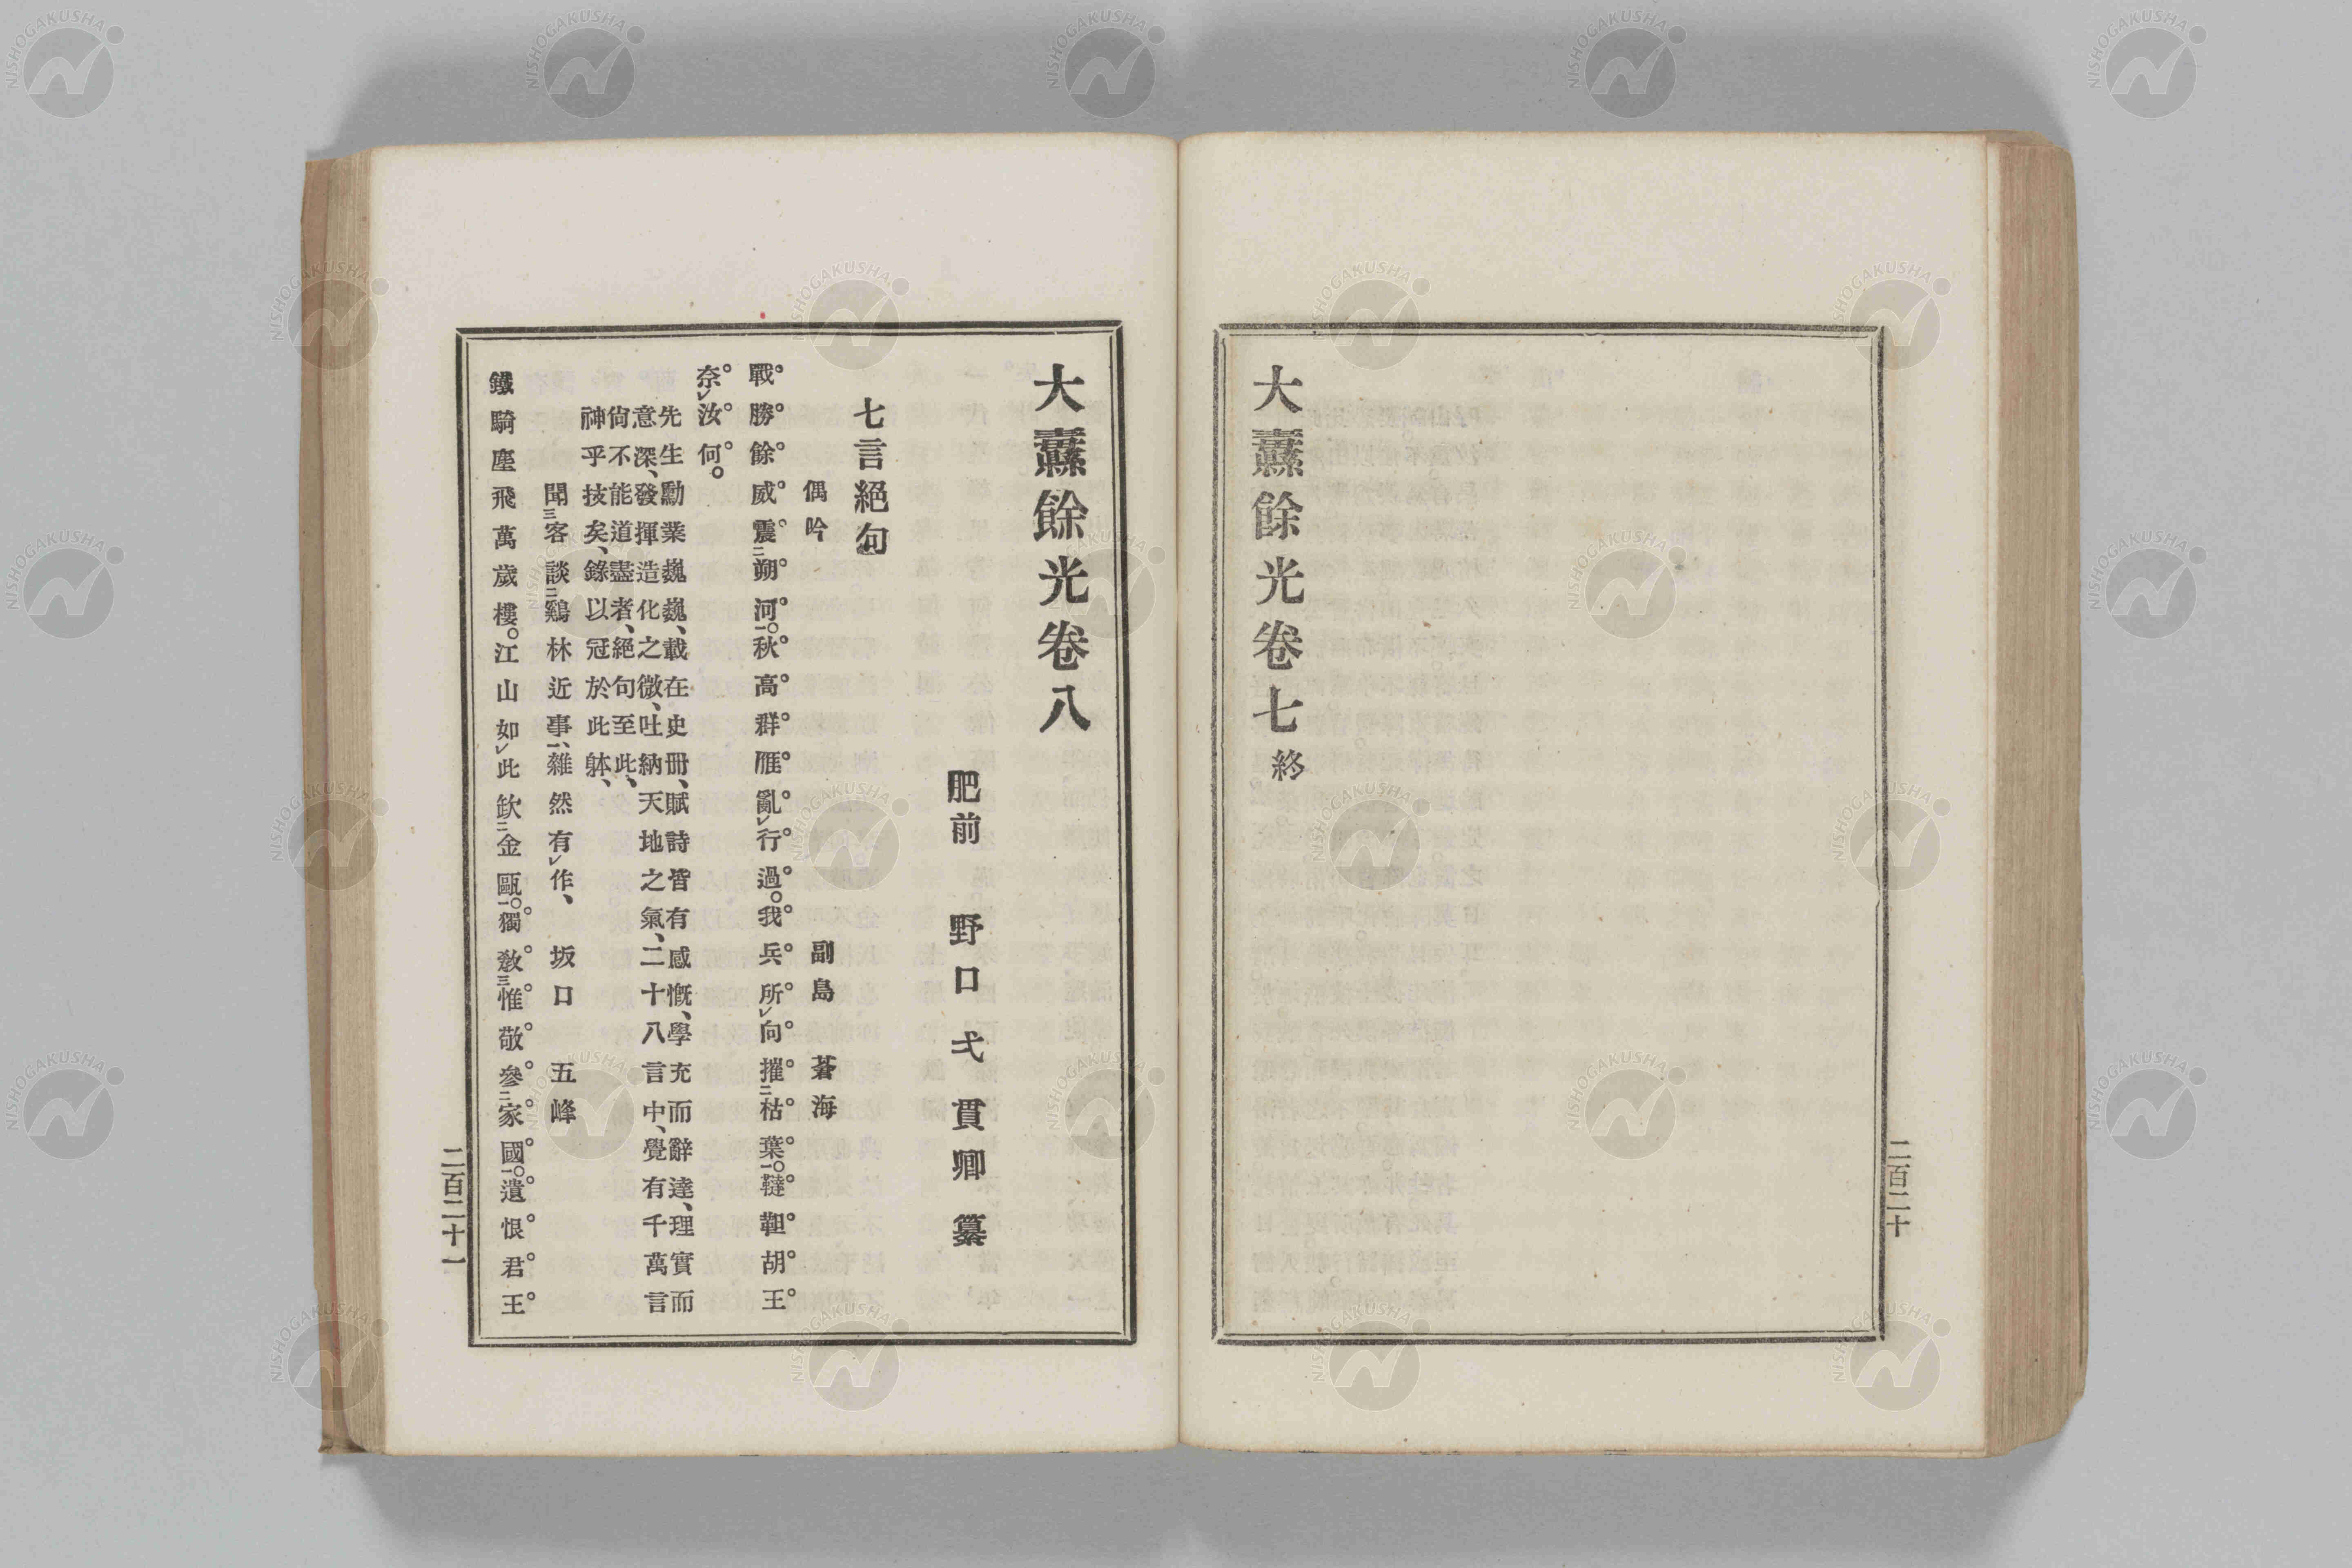 大纛餘光卷七終
二百二十
大纛餘光卷八
肥前 野口弌貫卿纂
七言絕句
偶吟 副島 蒼海
戰勝餘威震㆓朔河㆒。秋高群雁亂㆑行過。我兵所㆑向摧㆓枯葉㆒。韃靼胡王
奈㆑汝何。
先生勳業巍巍、載在史册、賦詩皆有感慨、學充而辭達、理實而
意深、發揮造化之微、吐納天地之氣、二十八言中、覺有千萬言
尙不能道盡者、絕句至此、
神乎技矣、錄以冠於此躰、
聞㆔客談㆓鷄林近事㆒、雜然有㆑作、 坂口 五峰
鐵騎塵飛萬歲樓。江山如㆑此缺㆓金甌㆒。獨敎㆔惟敬參㆓家國㆒。遺恨君王
二百二十一
NISHOGAKUSHA